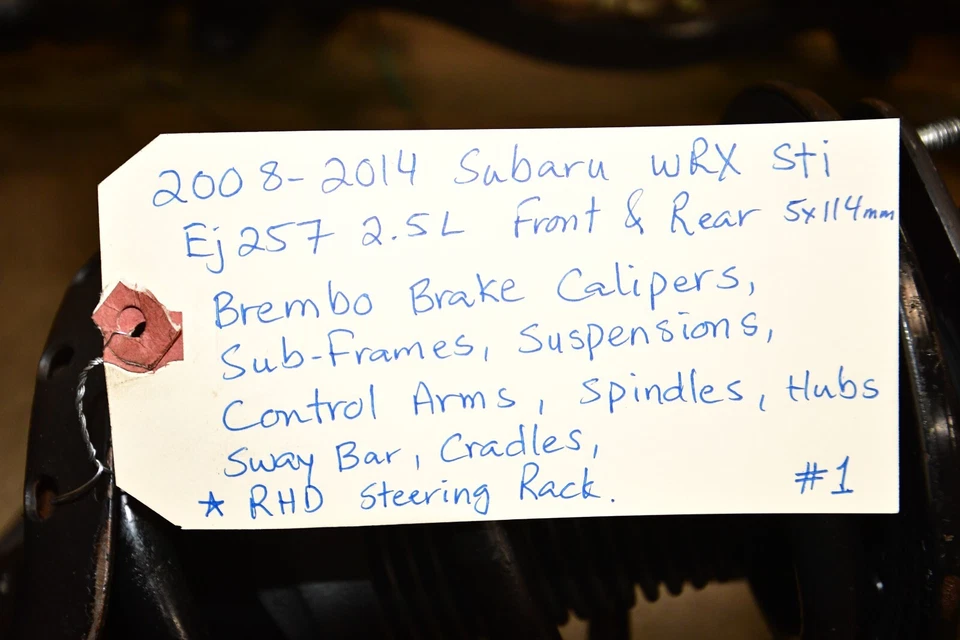 2008-2014 Subaru WRX Sti
Ej257 2.5L Front & Rear 5x114mm
Brembo Brake Calipers,
Sub-Frames, Suspensions,
Control Arms, Spindles, Hubs
Sway Bar, Cradles,
★ RHD Steering Rack. #1